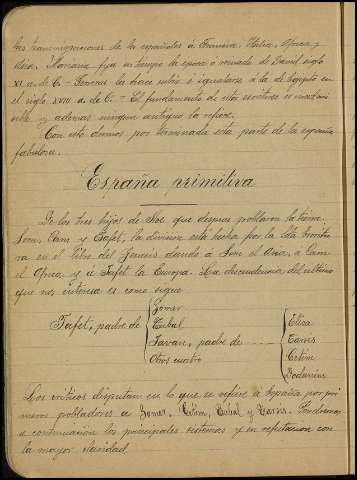 las transmigraciones de los españoles a Francia, Italia, Africa y
Asia. Mariana fija su tiempo de epoca o reinado de David, siglo
XI a. de C. = Ferreras la hace subir e igualarse a la de Egipto en
el siglo XVII a. de C. = El fundamento de estos escritores es
y ademas ningun antiguo la refiere.
Con esto damos por terminada esta parte de la españa
fabulosa.
España primitiva
De los tres hijos de Noe que despues poblaron la tierra
Sem, Cam y Jafet, la division está hecha por la Sda Escritu
ra en el libro del Genesis dando a Sem el Asia, a Cam
el Africa, y a Jafet la Europa. La descendencia del ultimo
que nos interesa es como sigue
Jafet, padre de
Gomer
Tubal
Javan, padre de
Otros cuatro
Elisa
Tarsis
Cetim
Dodanim
Los criticos disputan en lo que se refiere a España por pri
meros pobladores a Gomer, Cetim, Tubal y Tarsis. Pondremos
a continuacion los principales sistemas y su refutacion con
la mayor claridad.